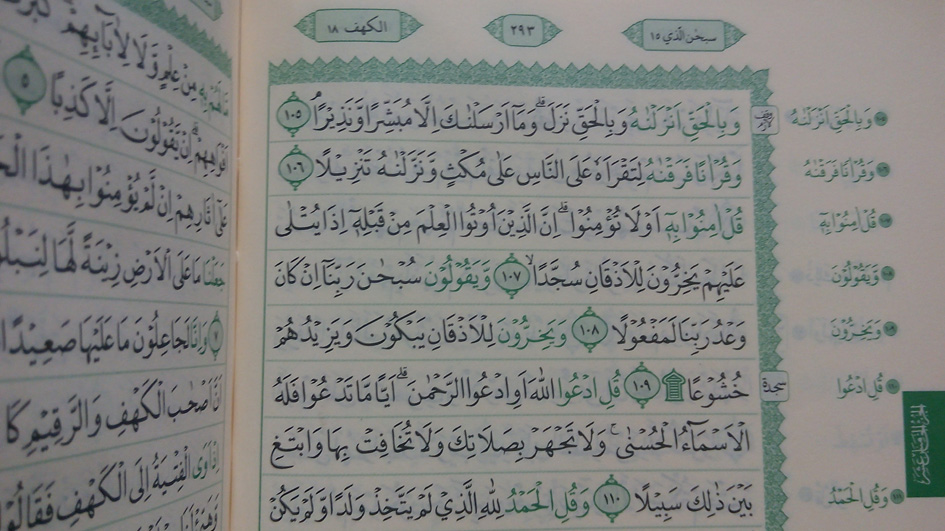 سبحن الذي ١٥
٢٩٣
الكهف ١٨
وَبِالْحَقِّ اَنْزَلْنٰهُ وَبِالْحَقِّ نَزَلَۗ وَمَآ اَرْسَلْنٰكَ اِلَّا مُبَشِّرًا وَّنَذِيْرًاۘ ١٠٥
وَقُرْاٰنًا فَرَقْنٰهُ لِتَقْرَاَهٗ عَلَى النَّاسِ عَلٰى مُكْثٍ وَّنَزَّلْنٰهُ تَنْزِيْلًا ١٠٦
قُلْ اٰمِنُوْا بِهٖٓ اَوْ لَا تُؤْمِنُوْاۗ اِنَّ الَّذِيْنَ اُوْتُوا الْعِلْمَ مِنْ قَبْلِهٖٓ اِذَا يُتْلٰى
عَلَيْهِمْ يَخِرُّوْنَ لِلْاَذْقَانِ سُجَّدًاۙ ١٠٧ وَّيَقُوْلُوْنَ سُبْحٰنَ رَبِّنَآ اِنْ كَانَ
وَعْدُ رَبِّنَا لَمَفْعُوْلًا ١٠٨ وَيَخِرُّوْنَ لِلْاَذْقَانِ يَبْكُوْنَ وَيَزِيْدُهُمْ
خُشُوْعًا ۩ ١٠٩ قُلِ ادْعُوا اللّٰهَ اَوِ ادْعُوا الرَّحْمٰنَۗ اَيًّا مَّا تَدْعُوْا فَلَهُ
الْاَسْمَاۤءُ الْحُسْنٰىۚ وَلَا تَجْهَرْ بِصَلَاتِكَ وَلَا تُخَافِتْ بِهَا وَابْتَغِ
بَيْنَ ذٰلِكَ سَبِيْلًا ١١٠ وَقُلِ الْحَمْدُ لِلّٰهِ الَّذِيْ لَمْ يَتَّخِذْ وَلَدًا وَّلَمْ يَكُنْ
وَبِالْحَقِّ اَنْزَلْنٰهُ
وَقُرْاٰنًا فَرَقْنٰهُ
قُلْ اٰمِنُوْا بِهٖٓ
وَّيَقُوْلُوْنَ
وَيَخِرُّوْنَ
قُلِ ادْعُوا
وَقُلِ الْحَمْدُ
سجدة
مِنْ عِلْمٍ وَّلَا لِاٰبَاۤىِٕهِمْۗ
اَفْوَاهِهِمْۗ اِنْ يَّقُوْلُوْنَ اِلَّا كَذِبًا ٥
عَلٰٓى اٰثَارِهِمْ اِنْ لَّمْ يُؤْمِنُوْا بِهٰذَا
جَعَلْنَا مَا عَلَى الْاَرْضِ زِيْنَةً لَّهَا لِنَبْلُوَ
٧ وَاِنَّا لَجَاعِلُوْنَ مَا عَلَيْهَا صَعِيْدًا
اَنَّ اَصْحٰبَ الْكَهْفِ وَالرَّقِيْمِ كَا
اِذْ اَوَى الْفِتْيَةُ اِلَى الْكَهْفِ فَقَالُوْا